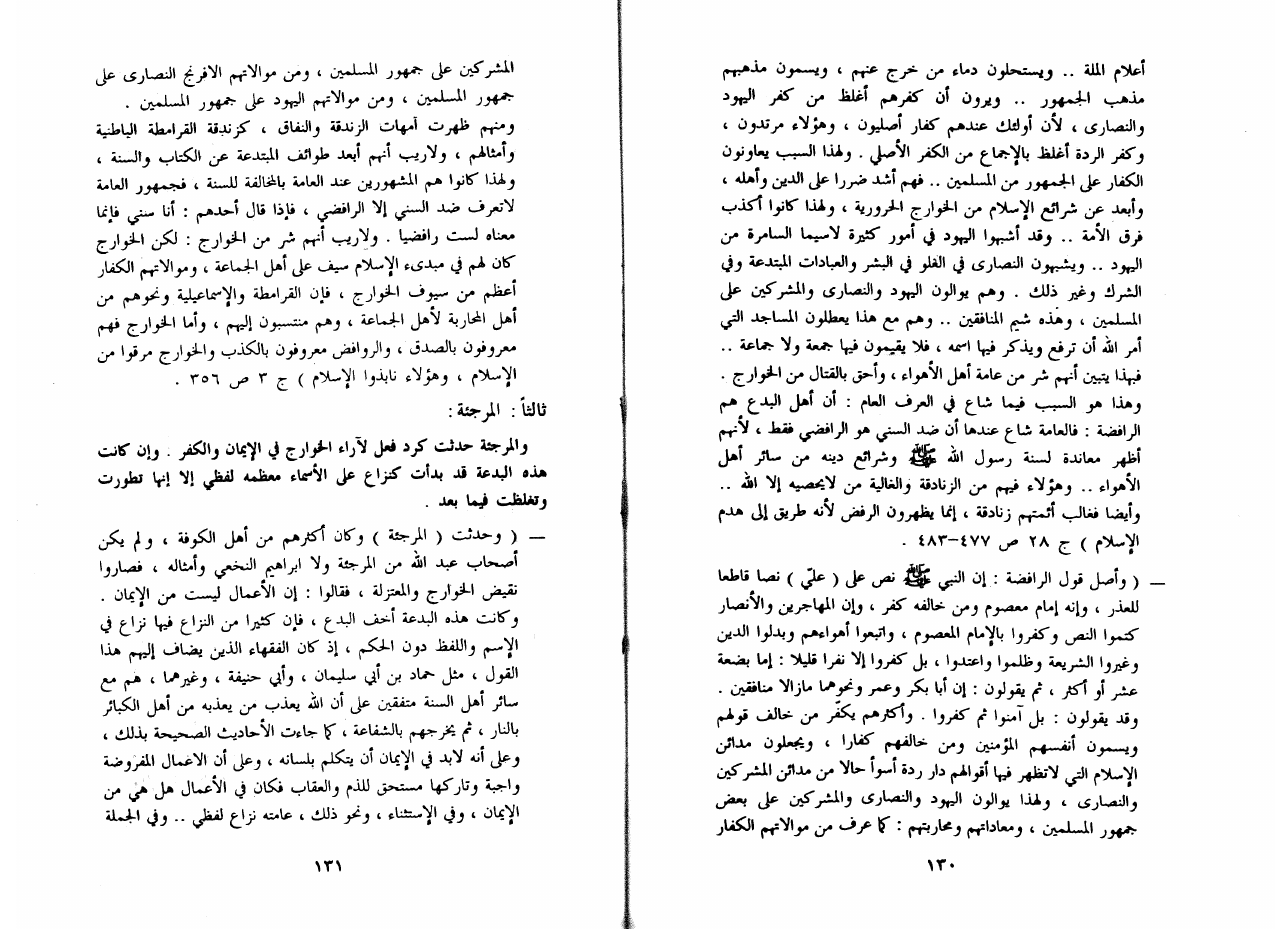 أعلام الملة .. ويستحلون دماء من خرج عنهم ، ويسمون مذهبهم
مذهب الجمهور .. ويرون أن كفرهم أغلظ من كفر اليهود
والنصارى ، لأن أولئك عندهم كفار أصليون ، وهؤلاء مرتدون ،
وكفر الردة أغلظ بالإجماع من الكفر الأصلي . ولهذا السبب يعاونون
الكفار على الجمهور من المسلمين .. فهم أشد ضررا على الدين وأهله ،
وأبعد عن شرائع الإسلام من الخوارج الحرورية ، ولهذا كانوا أكذب
فرق الأمة .. وقد أشبهوا اليهود في أمور كثيرة لاسيما السامرة من
اليهود .. ويشبهون النصارى في الغلو في البشر والعبادات المبتدعة وفي
الشرك وغير ذلك . وهم يوالون اليهود والنصارى والمشركين على
المسلمين ، وهذه شيم المنافقين .. وهم مع هذا يعطلون المساجد التي
أمر الله أن ترفع ويذكر فيها اسمه ، فلا يقيمون فيها جمعة ولا جماعة ..
فبهذا يتبين أنهم شر من عامة أهل الأهواء ، وأحق بالقتال من الخوارج .
وهذا هو السبب فيما شاع في العرف العام : أن أهل البدع هم
الرافضة : فالعامة شاع عندها أن ضد السني هو الرافضي فقط ، لأنهم
أظهر معاندة لسنة رسول الله ﷺ وشرائع دينه من سائر أهل
الأهواء .. وهؤلاء فيهم من الزنادقة والغالية من لايحصيه إلا الله ..
وأيضا فغالب أئمتهم زنادقة ، إنما يظهرون الرفض لأنه طريق إلى هدم
الإسلام ) ج ٢٨ ص ٤٧٧-٤٨٣ .
— ( وأصل قول الرافضة : إن النبي ﷺ نص على ( عليّ ) نصا قاطعا
للعذر ، وإنه إمام معصوم ومن خالفه كفر ، وإن المهاجرين والأنصار
كتموا النص وكفروا بالإمام المعصوم ، واتبعوا أهواءهم وبدلوا الدين
وغيروا الشريعة وظلموا واعتدوا ، بل كفروا إلا نفرا قليلا : إما بضعة
عشر أو أكثر ، ثم يقولون : إن أبا بكر وعمر ونحوهما مازالا منافقين .
وقد يقولون : بل آمنوا ثم كفروا . وأكثرهم يكفّر من خالف قولهم
ويسمون أنفسهم المؤمنين ومن خالفهم كفارا ، ويجعلون مدائن
الإسلام التي لاتظهر فيها أقوالهم دار ردة أسوأ حالا من مدائن المشركين
والنصارى ، ولهذا يوالون اليهود والنصارى والمشركين على بعض
جمهور المسلمين ، ومعاداتهم ومحاربتهم : كما عرف من موالاتهم الكفار
١٣٠
المشركين على جمهور المسلمين ، ومن موالاتهم الافرنج النصارى على
جمهور المسلمين ، ومن موالاتهم اليهود على جمهور المسلمين .
ومنهم ظهرت أمهات الزندقة والنفاق ، كزندقة القرامطة الباطنية
وأمثالهم ، ولاريب أنهم أبعد طوائف المبتدعة عن الكتاب والسنة ،
ولهذا كانوا هم المشهورين عند العامة بالمخالفة للسنة ، فجمهور العامة
لاتعرف ضد السني إلا الرافضي ، فإذا قال أحدهم : أنا سني فإنما
معناه لست رافضيا . ولاريب أنهم شر من الخوارج : لكن الخوارج
كان لهم في مبدىء الإسلام سيف على أهل الجماعة ، وموالاتهم الكفار
أعظم من سيوف الخوارج ، فإن القرامطة والإسماعيلية ونحوهم من
أهل المحاربة لأهل الجماعة ، وهم منتسبون إليهم ، وأما الخوارج فهم
معروفون بالصدق ، والروافض معروفون بالكذب والخوارج مرقوا من
الإسلام ، وهؤلاء نابذوا الإسلام ) ج ٣ ص ٣٥٦ .
ثالثاً : المرجئة :
والمرجئة حدثت كرد فعل لآراء الخوارج في الإيمان والكفر . وإن كانت
هذه البدعة قد بدأت كنزاع على الأسماء معظمه لفظي إلا إنها تطورت
وتغلظت فيما بعد .
— ( وحدثت ( المرجئة ) وكان أكثرهم من أهل الكوفة ، ولم يكن
أصحاب عبد الله من المرجئة ولا ابراهيم النخعي وأمثاله ، فصاروا
نقيض الخوارج والمعتزلة ، فقالوا : إن الأعمال ليست من الإيمان .
وكانت هذه البدعة أخف البدع ، فإن كثيرا من النزاع فيها نزاع في
الإسم واللفظ دون الحكم ، إذ كان الفقهاء الذين يضاف إليهم هذا
القول ، مثل حماد بن أبي سليمان ، وأبي حنيفة ، وغيرهما ، هم مع
سائر أهل السنة متفقين على أن الله يعذب من يعذبه من أهل الكبائر
بالنار ، ثم يخرجهم بالشفاعة ، كما جاءت الأحاديث الصحيحة بذلك ،
وعلى أنه لابد في الإيمان أن يتكلم بلسانه ، وعلى أن الاعمال المفروضة
واجبة وتاركها مستحق للذم والعقاب فكان في الأعمال هل هي من
الإيمان ، وفي الإستثناء ، ونحو ذلك ، عامته نزاع لفظي .. وفي الجملة
١٣١